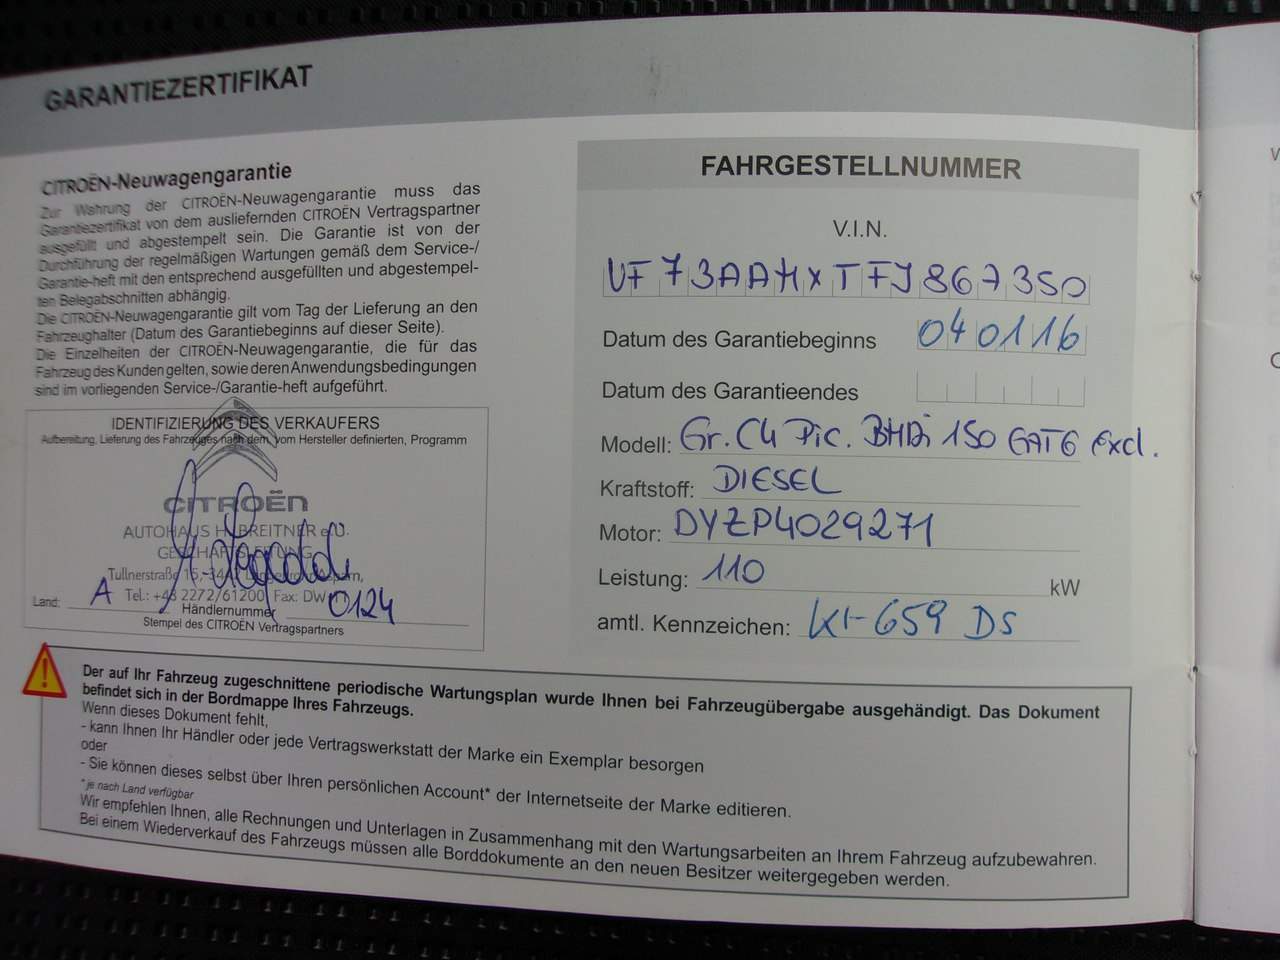 GARANTIEZERTIFIKAT
CITROËN-Neuwagengarantie
Zur Wahrung der CITROËN-Neuwagengarantie muss das
Garantiezertifikat von dem ausliefernden CITROËN Vertragspartner
ausgefüllt und abgestempelt sein. Die Garantie ist von der
Durchführung der regelmäßigen Wartungen gemäß dem Service-/
Garantie-heft mit den entsprechend ausgefüllten und abgestempel-
ten Belegabschnitten abhängig.
Die CITROËN-Neuwagengarantie gilt vom Tag der Lieferung an den
Fahrzeughalter (Datum des Garantiebeginns auf dieser Seite).
Die Einzelheiten der CITROËN-Neuwagengarantie, die für das
Fahrzeug des Kunden gelten, sowie deren Anwendungsbedingungen
sind im vorliegenden Service-/Garantie-heft aufgeführt.
IDENTIFIZIERUNG DES VERKAUFERS
Aufbereitung, Lieferung des Fahrzeuges nach dem, vom Hersteller definierten, Programm
CITROËN
AUTOHAUS H. BREITNER e.U.
GESCHÄFTSLEITUNG
Tullnerstraße 15,
Tel.: +43 2272/61200, Fax: DW
Land: A Händlernummer 0124
Stempel des CITROËN Vertragspartners
FAHRGESTELLNUMMER
V.I.N.
VF73AAHXTFJ867350
Datum des Garantiebeginns 040116
Datum des Garantieendes
Modell: Gr. C4 Pic. BHDi 150 EAT6 Excl.
Kraftstoff: DIESEL
Motor: DYZP4029271
Leistung: 110 kW
amtl. Kennzeichen: KI-659 DS
Der auf Ihr Fahrzeug zugeschnittene periodische Wartungsplan wurde Ihnen bei Fahrzeugübergabe ausgehändigt. Das Dokument
befindet sich in der Bordmappe Ihres Fahrzeugs.
Wenn dieses Dokument fehlt,
- kann Ihnen Ihr Händler oder jede Vertragswerkstatt der Marke ein Exemplar besorgen
oder
- Sie können dieses selbst über Ihren persönlichen Account* der Internetseite der Marke editieren.
*je nach Land verfügbar
Wir empfehlen Ihnen, alle Rechnungen und Unterlagen in Zusammenhang mit den Wartungsarbeiten an Ihrem Fahrzeug aufzubewahren.
Bei einem Wiederverkauf des Fahrzeugs müssen alle Borddokumente an den neuen Besitzer weitergegeben werden.